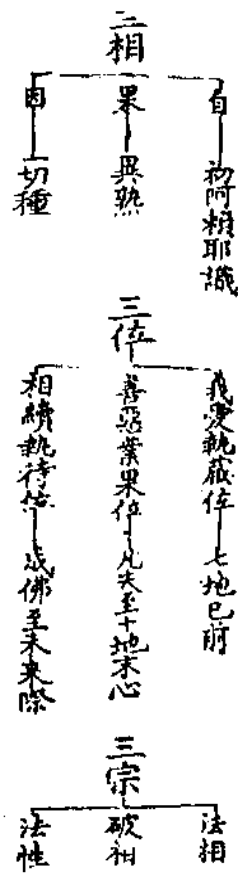 三相
自 初阿賴耶識
果 異熟
因 一切種
三位
我愛執藏位 七地已前
善惡業果位 凡夫至十地末心
相續執持位 成佛至未來際
三宗
法相
破相
法性